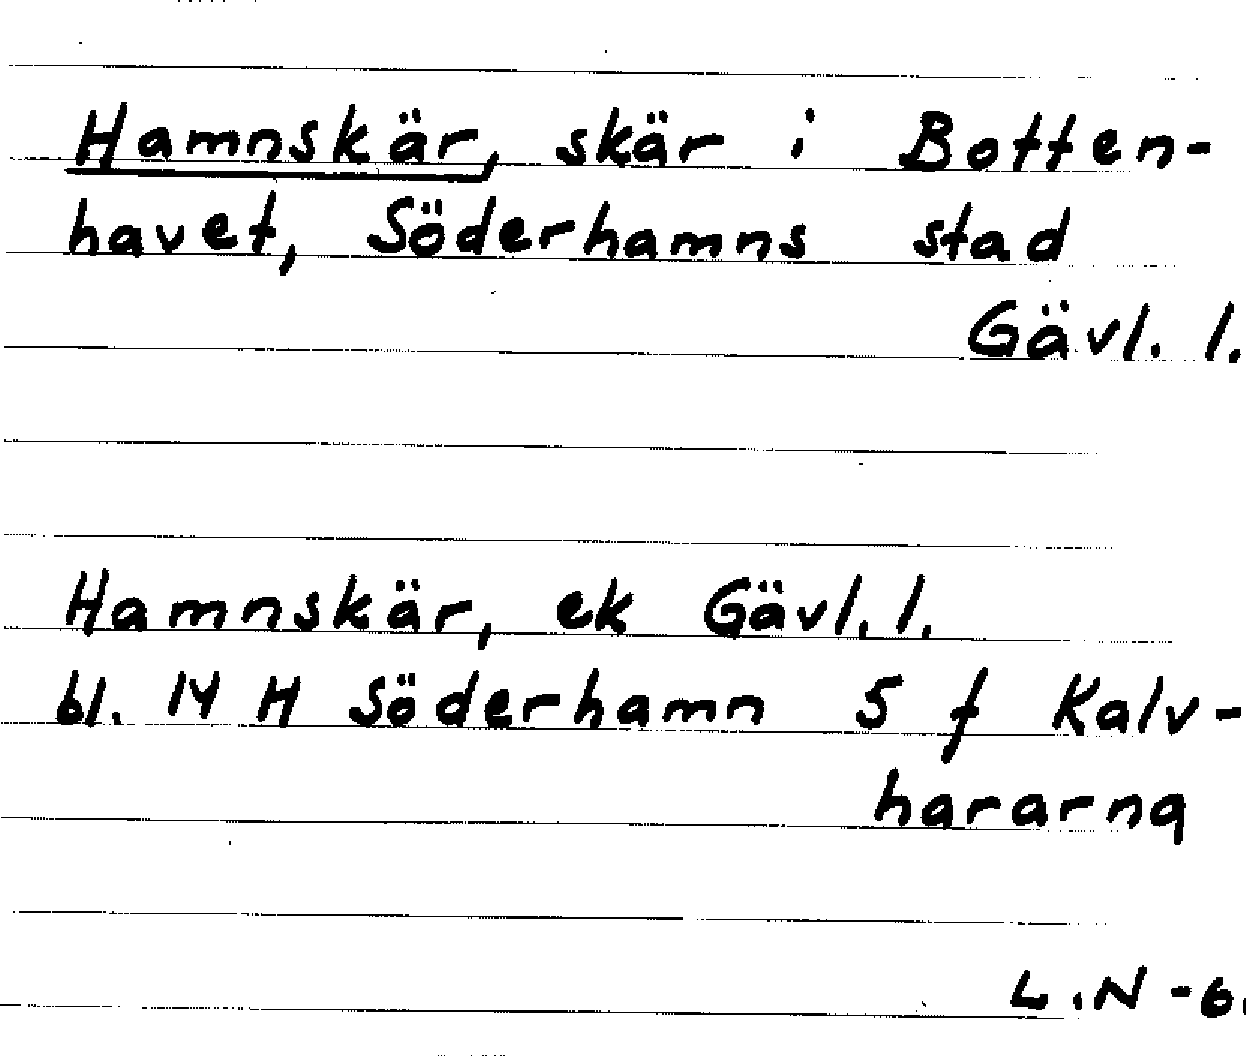 Hamnskär, skär i Botten-
havet, Söderhamns stad
Gävl. l.
Hamnskär, ek Gävl. l.
bl. 14 H Söderhamn 5 f Kalv-
hararna
L.N -6